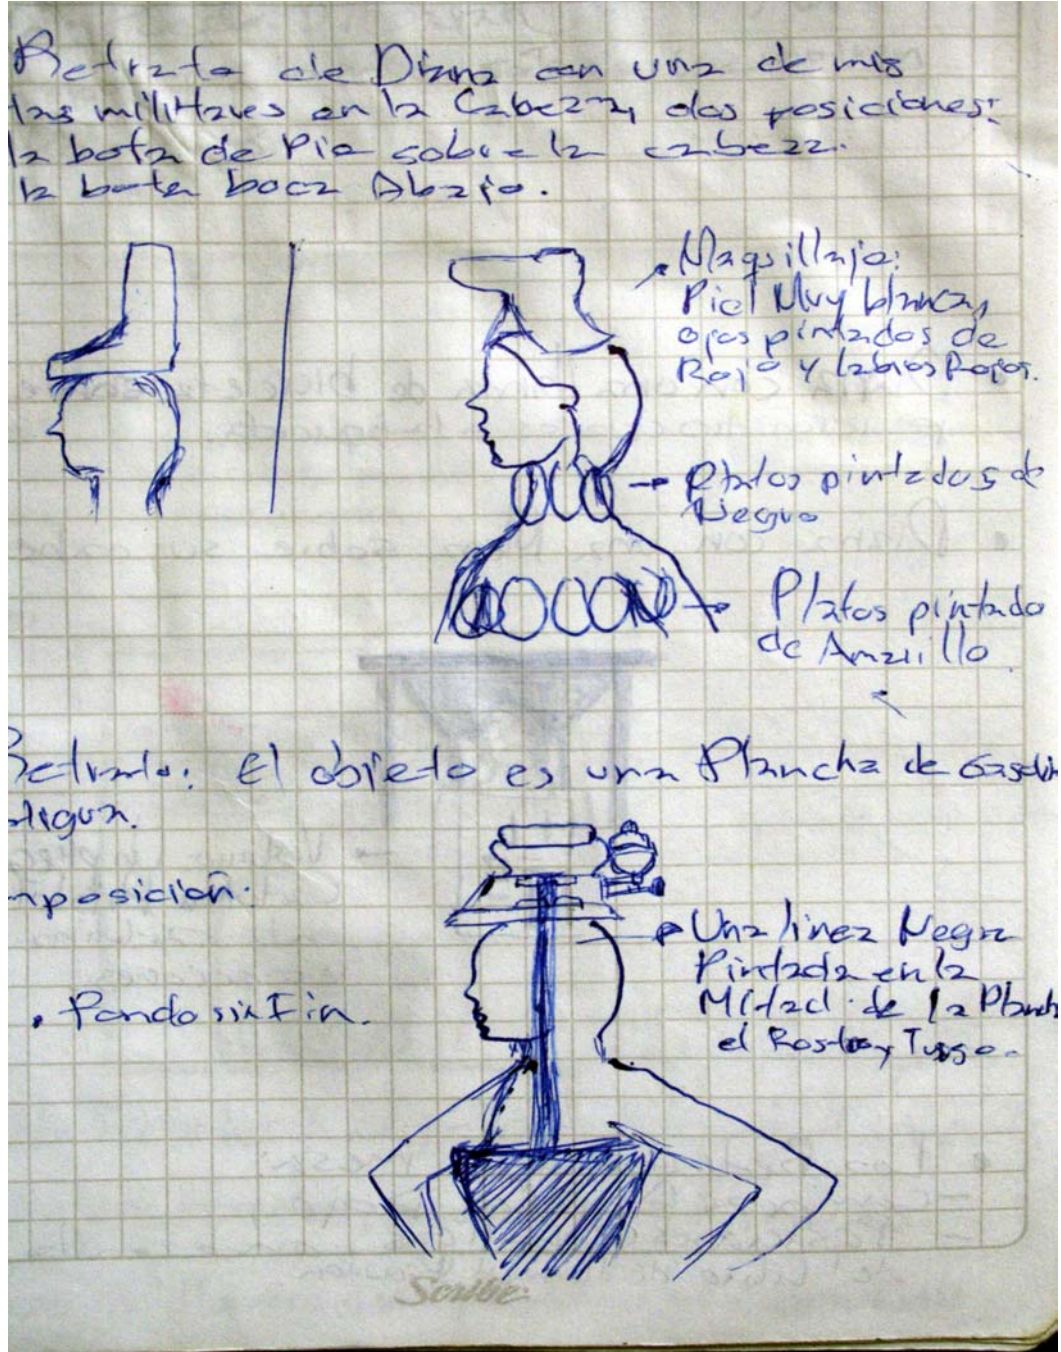 Retrato de Diana con una de mis
tas militares en la Cabeza, dos posiciones:
la bota de Pie sobre la cabeza.
la bota boca Abajo.
Maquillaje:
Piel Muy blanca,
ojos pintados de
Rojo y labios Rojos.
Platos pintados de
Negro
Platos pintado
de Amarillo
Retrato: El objeto es una Plancha de Gasolin
tigua.
mposición.
Una linea Negra
Pintada en la
Mitad de la Planch
el Rostro y Torso.
. Fondo sin Fin.
Scribe